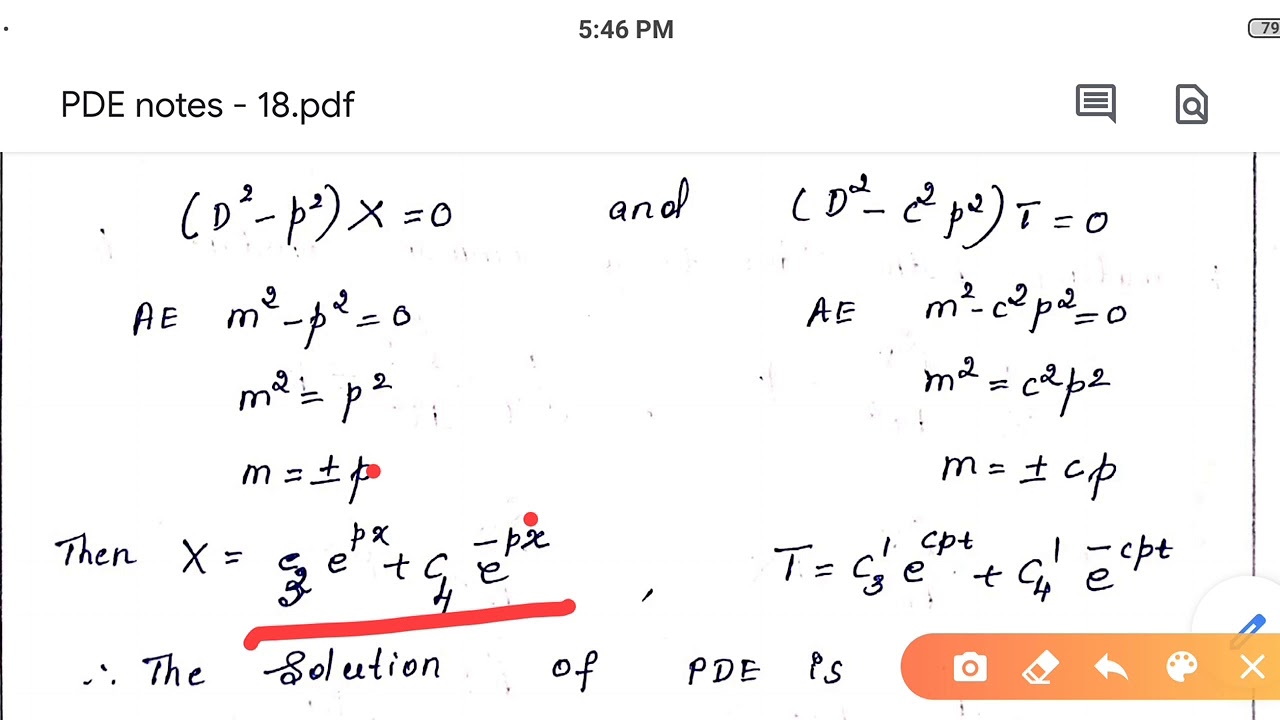 5:46 PM
79
PDE notes - 18.pdf
(D² - p²) X = 0 and (D² - c² p²) T = 0
AE m² - p² = 0 AE m² - c² p² = 0
m² = p² m² = c² p²
m = ± p m = ± cp
Then X = c₃ e^{px} + c₄ e^{-px} , T = c₃' e^{cpt} + c₄' e^{-cpt}
∴ The Solution of PDE is